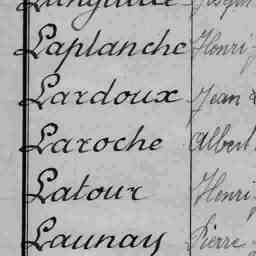 Laplanche Henri
Lardoux Jean
Laroche Albert
Latour Henri
Launay Pierre